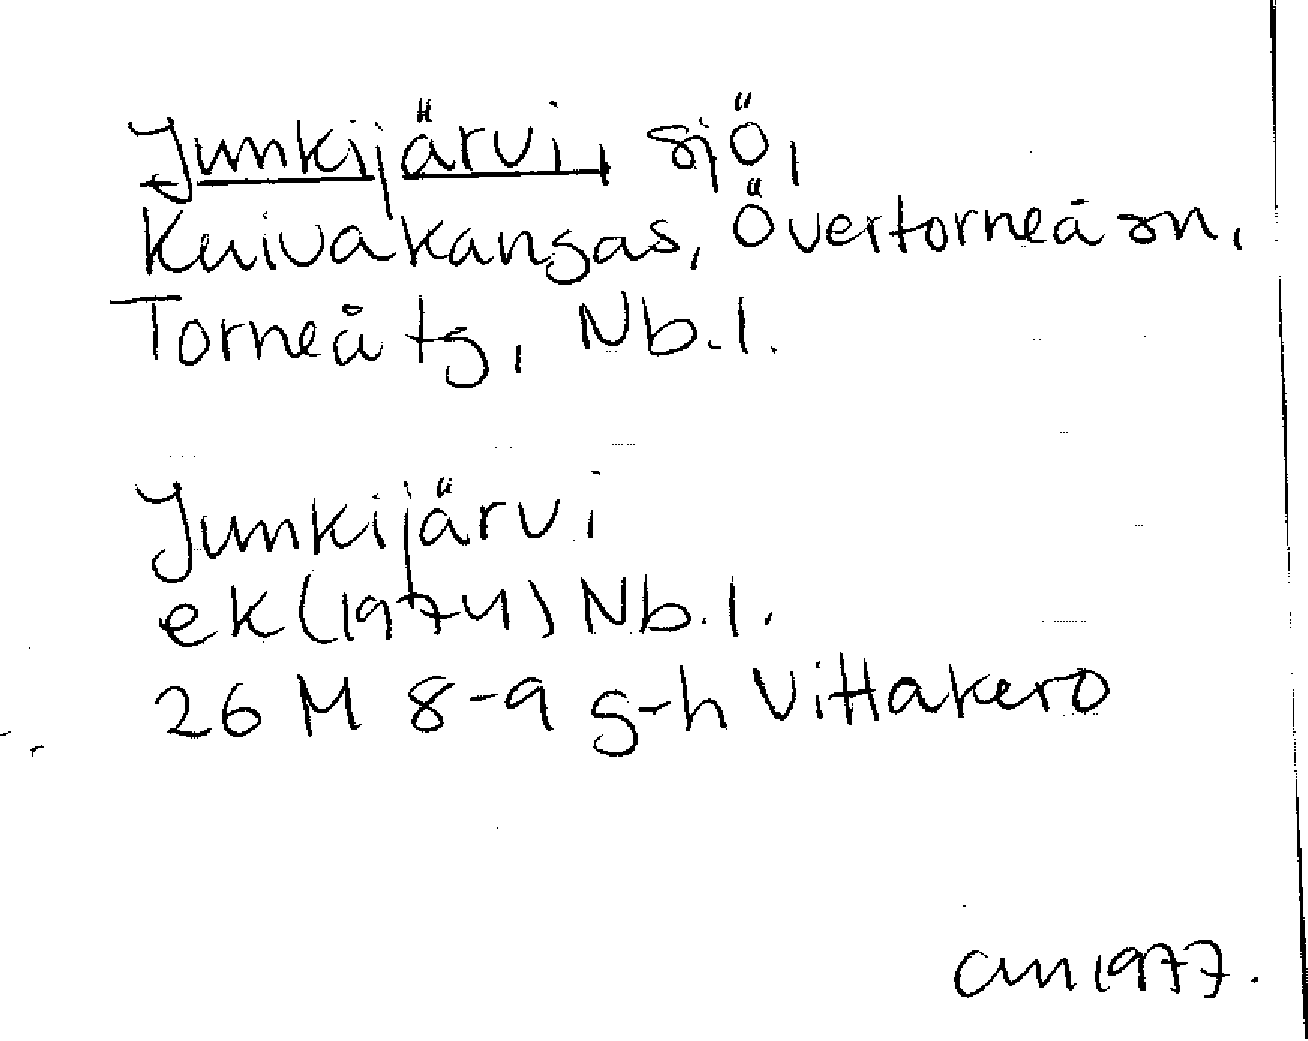 Junkijärvi, sjö,
Kuivakangas, Övertorneå sn,
Torneå tg, Nb.l.
Junkijärvi
ek (1974) Nb.l.
26 M 8-9 g-h Vittakero
am 1977.